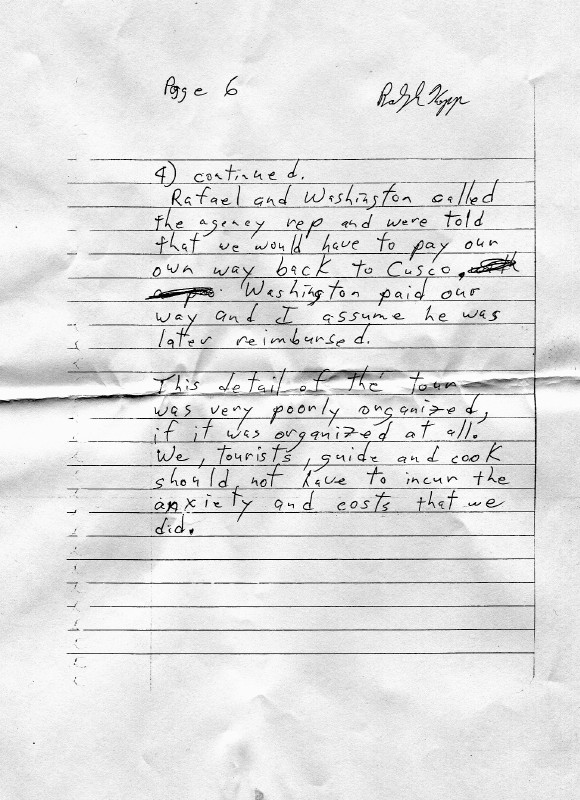 Page 6
Ralph Kopp
4) continued.
Rafael and Washington called
the agency rep and were told
that we would have to pay our
own way back to Cusco,
Washington paid our
way and I assume he was
later reimbursed.
This detail of the tour
was very poorly organized,
if it was organized at all.
We, tourists, guide and cook
should not have to incur the
anxiety and costs that we
did.